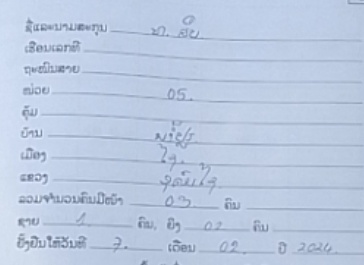 ຊື່ແລະນາມສະກຸນ ທ. ສີບ
ເຮືອນເລກທີ
ຖະໜົນສາຍ
ໜ່ວຍ 05.
ຄຸ້ມ
ບ້ານ
ເມືອງ ໄຊ.
ແຂວງ ອຸດົມໄຊ
ລວມຈຳນວນຄົນມີໜ້າ 03 ຄົນ
ຊາຍ 1 ຄົນ, ຍິງ 02 ຄົນ
ຢັ້ງຢືນໃຫ້ວັນທີ 7. ເດືອນ 02. ປີ 2024